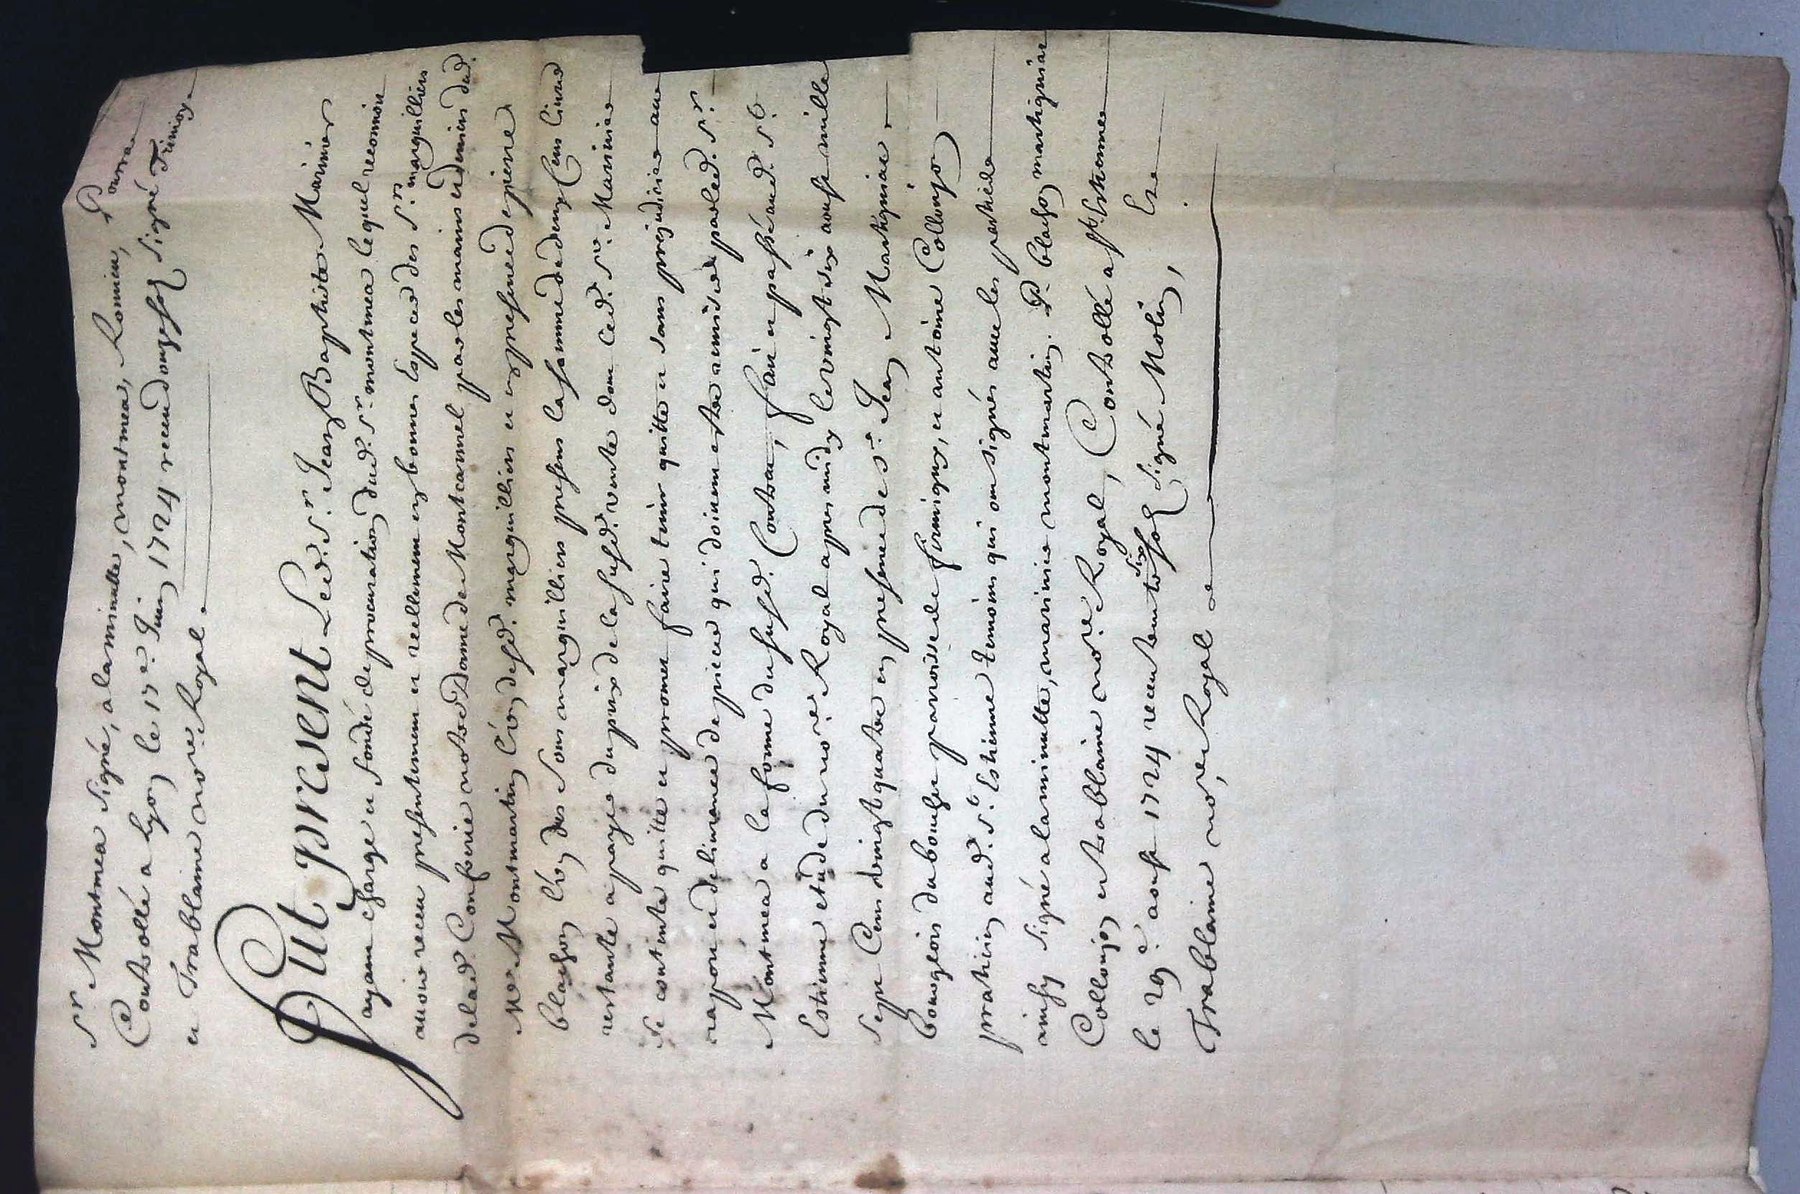 Sr. Montmea signé, a la minutte, montmea, Romieu, Pourra
Controllé a Lyon le 17e. Juin 1724 receu douze sols signé Trimoy
et Trablaine nore. Royal.
Fut present Led. Sr. Jean Baptiste Marinier
ayant charge et fondé de procuration dud. Sr. montmea lequel reconnoit
auoir receu presentement et reellement en bonnes Especes des Srs. marguilliers
de lad. Confrerie notre Dame de Montcarmel par les mains et deniers dud.
Mre. Montmartin l'vn desd. marguilliers et en presence de pierre
blachon l'vn des sous marguilliers present la somme de deux Cens Liures
restante a payer du prix de la susd. vente dont led. Sr. Marinier
se contente quitte et promet faire tenir quitte et sans prejudicier au
rapport et deliurance de pieces qui doiuent estre remises par led. Sr.
Montmea a la forme du susd. Contrat, fait et passé aud. St.
Estienne etude du nore. Royal apres midy le vingt six aoust mille
Sept Cent vingt quatre en presence de Sr. Jean Martignial
bourgeois du bourg et parroisse de firminy, et antoine Collonjon
praticien aud. St. Estienne temoins qui ont signés auec les parties
ainsy signé a la minutte, marinier montmartin. P. blachon martignial
Collonjon et trablaine nore. Royal, Controllé a St. Estienne
le 29e. aoust 1724 receu trente six sols signé Molin,
Trablaine nore. Royal